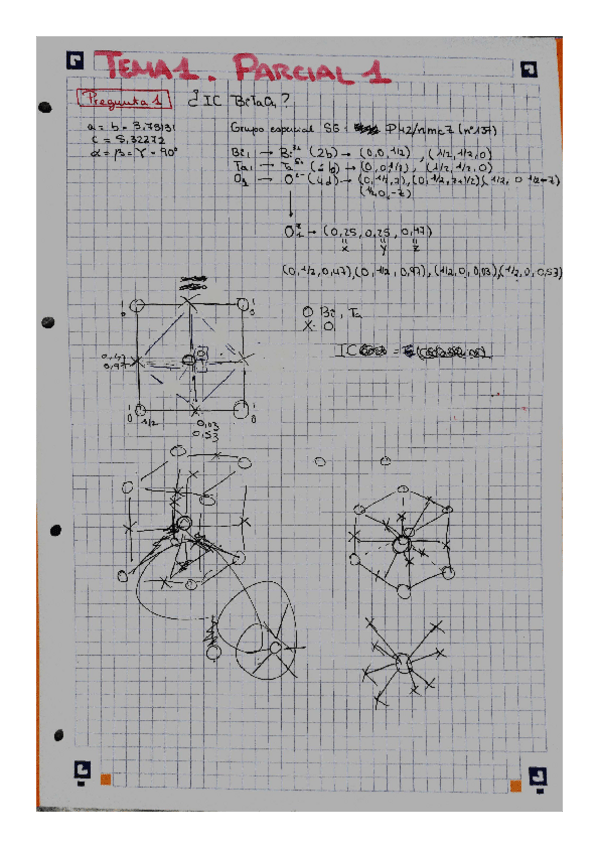 TEMA 1. PARCIAL 1
Pregunta 1 ¿IC BiTaO₄?
a = b = 3,78131
c = 5,32272
α = β = γ = 90°
Grupo espacial SG: P42/nmc Z (nº 137)
Bi₁ → Bi³⁺ (2b) → (0,0,1/2), (1/2,1/2,0)
Ta₁ → Ta⁵⁺ (2b) → (0,0,1/2), (1/2,1/2,0)
O₁ → O²⁻ (4d) → (0,1/2,z), (0,1/2,z+1/2), (1/2,0,1/2-z)
(1/2,0,-z)
→ (0,25, 0,25, 0,47)
x y z
(0,1/2,0,47), (0,1/2,0,97), (1/2,0,0,03), (1/2,0,0,53)
O Bi, Ta
X O
0,47
0,97
1/2
0,03
0,53
IC =